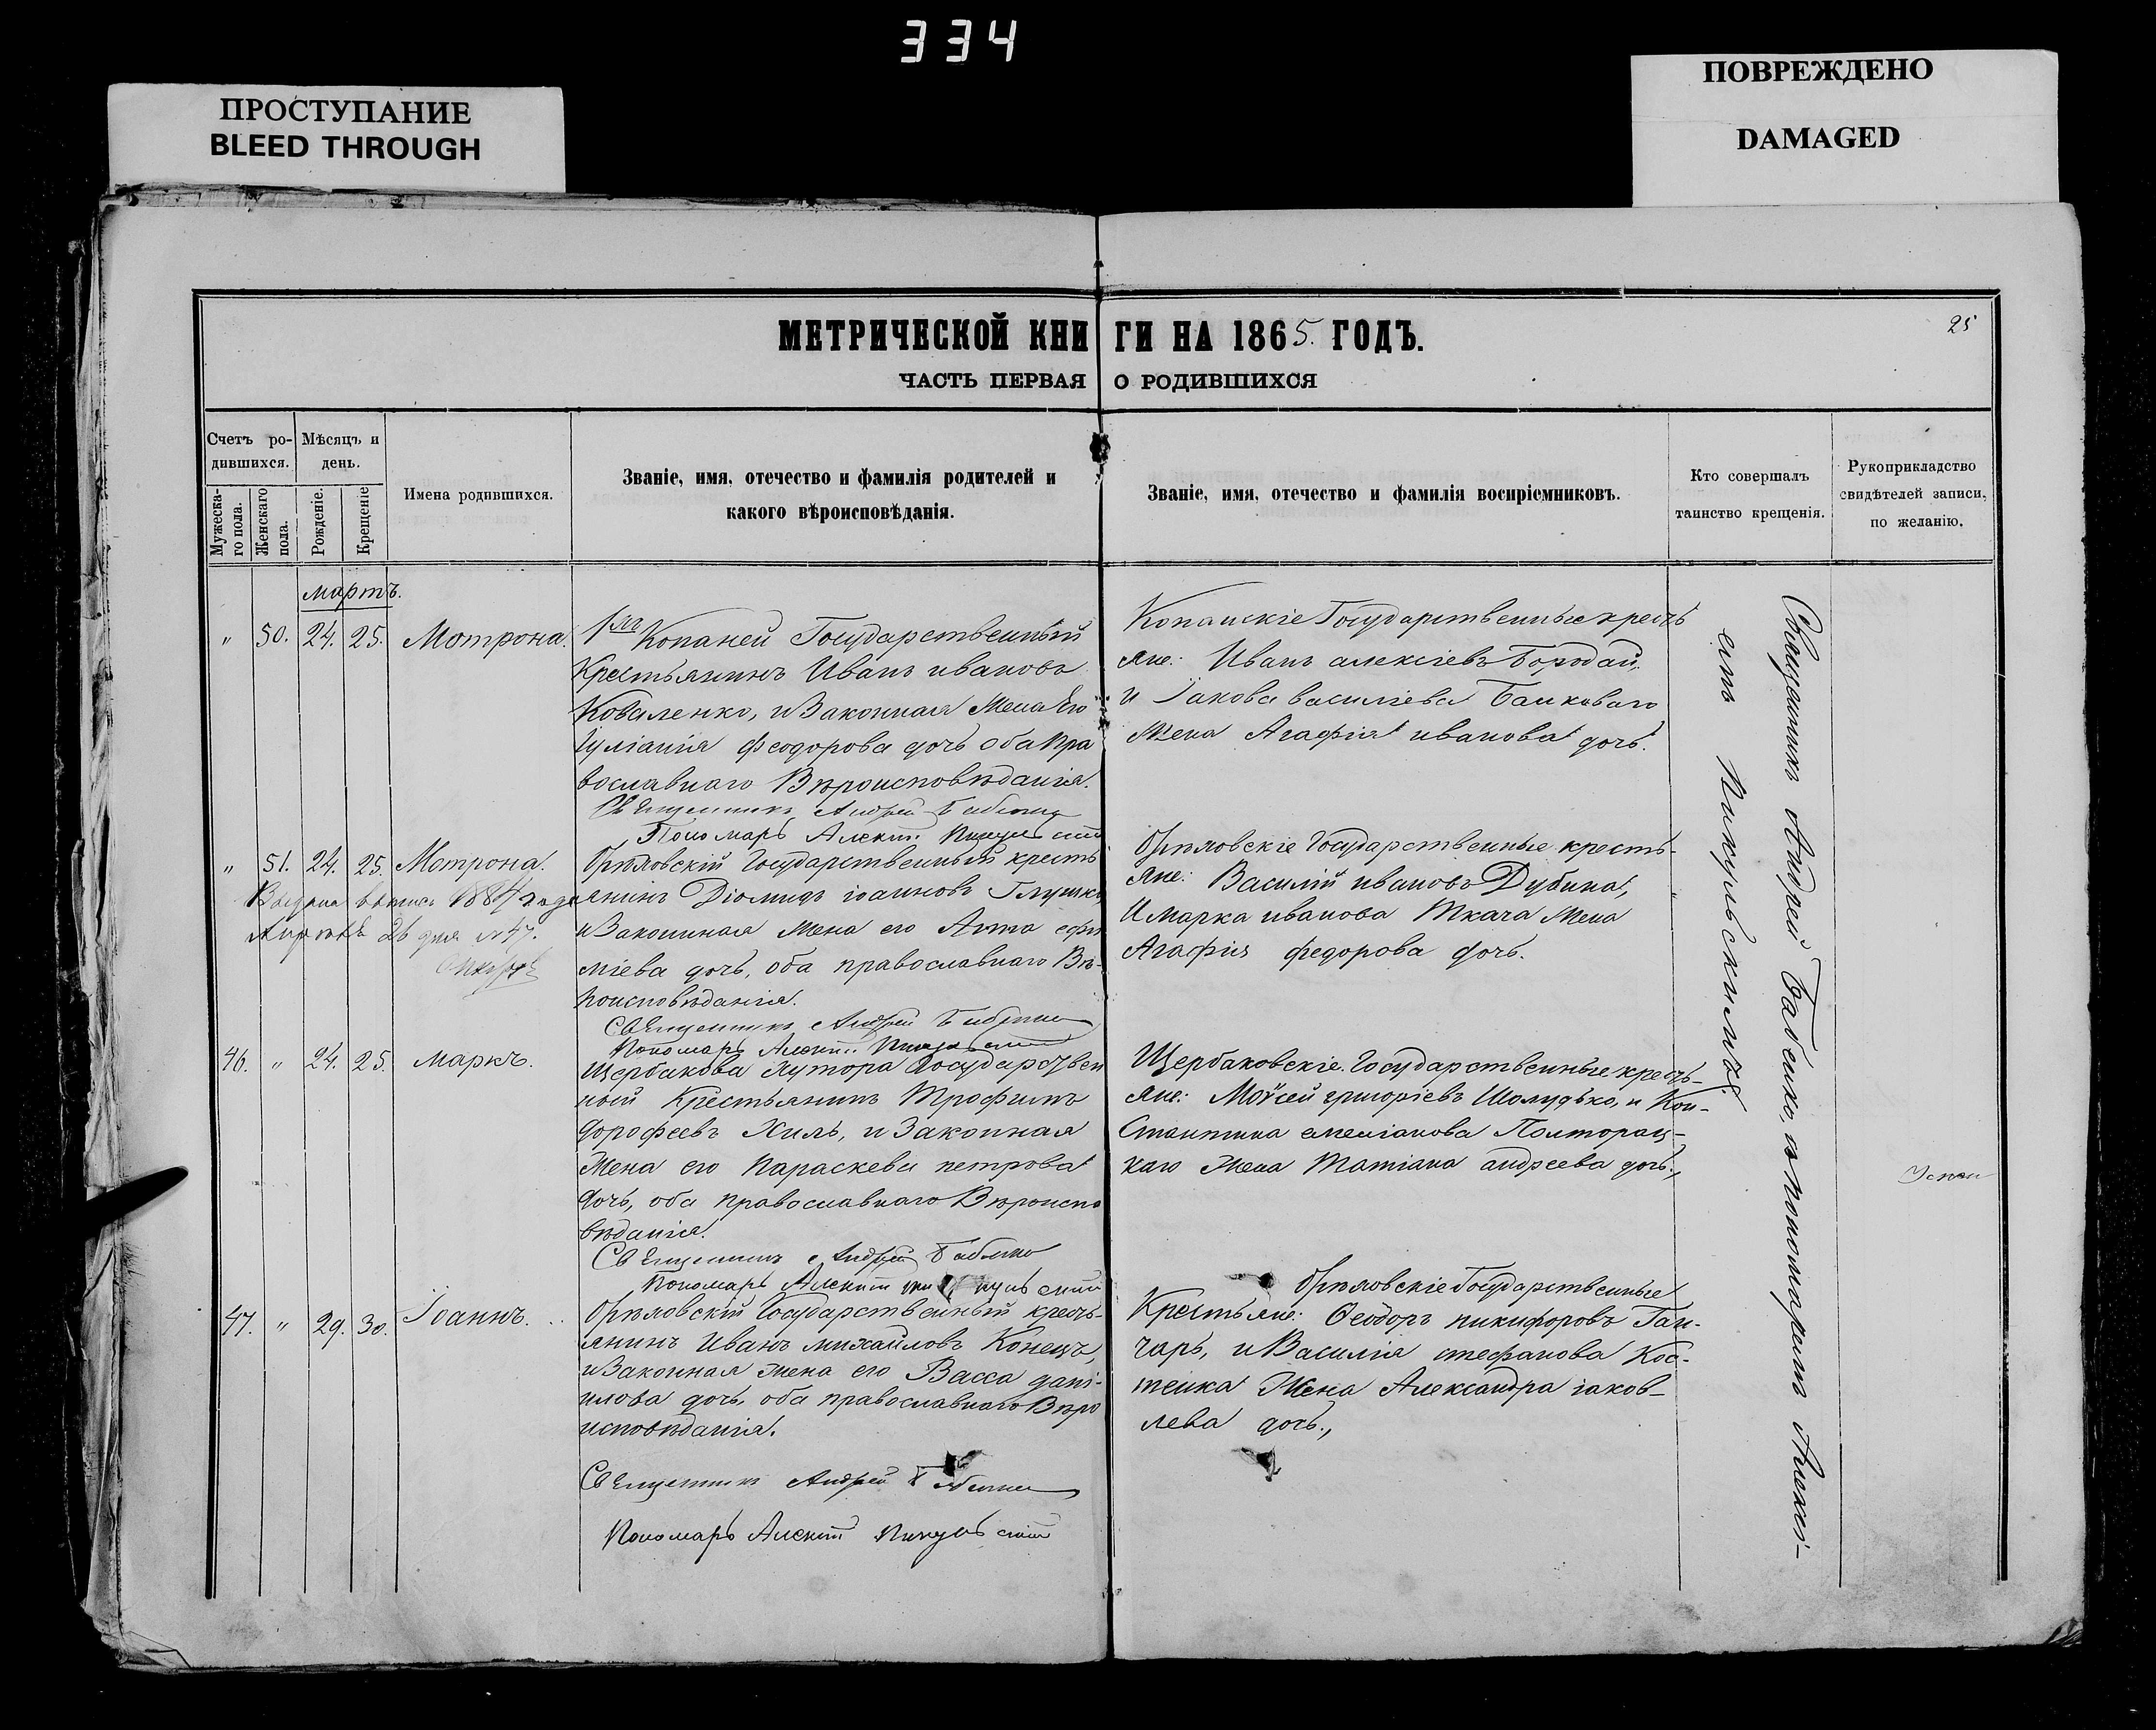 334
ПРОСТУПАНИЕ
BLEED THROUGH
ПОВРЕЖДЕНО
DAMAGED
25
МЕТРИЧЕСКОЙ КНИГИ НА 1865. ГОДЪ.
ЧАСТЬ ПЕРВАЯ О РОДИВШИХСЯ
Счетъ ро-
дившихся.
Мужеска-
го пола.
Женскаго
пола.
Мѣсяцъ и
день.
Рожденіе.
Крещеніе
Имена родившихся.
Званіе, имя, отечество и фамилія родителей и
какого вѣроисповѣданія.
Званіе, имя, отечество и фамилія воспріемниковъ.
Кто совершалъ
таинство крещенія.
Рукоприкладство
свидѣтелей записи,
по желанію.
мартъ.
" 50. 24. 25. Мотрона.
Копаней Государственный
Крестьянинъ Иванъ ивановъ
Коваленко, и Законная Жена Его
Іуліанія феодорова дочь оба Пра
вославнаго Вѣроисповѣданія.
Священникъ Андрей Бабенко
Пономарь Алексѣй Пикульскій
Копанскіе Государственные кресть
яне: Иванъ алексіевъ Бородай,
и Іакова василіева Банковаго
Жена Агафія иванова дочь.
" 51. 24. 25. Мотрона.
1884 года
26 дня № 47.
Орѣловскій Государственный кресть
янинъ Діомидъ іоанновъ Глушко,
и Законная жена его Анна ефи
міева дочь, оба православнаго Вѣ-
роисповѣданія.
Священникъ Андрей Бабенко
Пономарь Алексѣй Пикульскій
Орѣловскіе Государственные кресть-
яне: Василій ивановъ Дубина,
и марка иванова Ткача Жена
Агафія федорова дочь.
46. " 24. 25. маркъ.
Щербакова Хутора Государствен
ный Крестьянинъ Трофимъ
дорофеевъ Хиль, и Законная
Жена его Параскева петрова
дочь, оба православнаго Вѣроиспо
вѣданія.
Священникъ Андрей Бабенко
Пономарь Алексѣй Пикульскій
Щербаковскіе Государственные кресть-
яне: Моѵсей григоріевъ Шолудько, и Кон-
стантина емеліанова Полторац-
каго Жена Татіана андреева дочь.,
47. " 29. 30. Іоаннъ.
Орѣловскій Государственный кресть-
янинъ Иванъ михайловъ Конецъ,
и Законная жена его Васса дані-
илова дочь, оба православнаго Вѣро
исповѣданія.
Священникъ Андрей Бабенко
Пономарь Алексѣй Пикульскій
Орѣловскіе Государственные
Крестьяне: Ѳеодоръ никифоровъ Ган-
чарь, и Василія стефанова Кос-
тенка Жена Александра іаков-
лева дочь.,
Священникъ Андрей Бабенко, и пономаремъ Алексі-
емъ Пикульскимъ